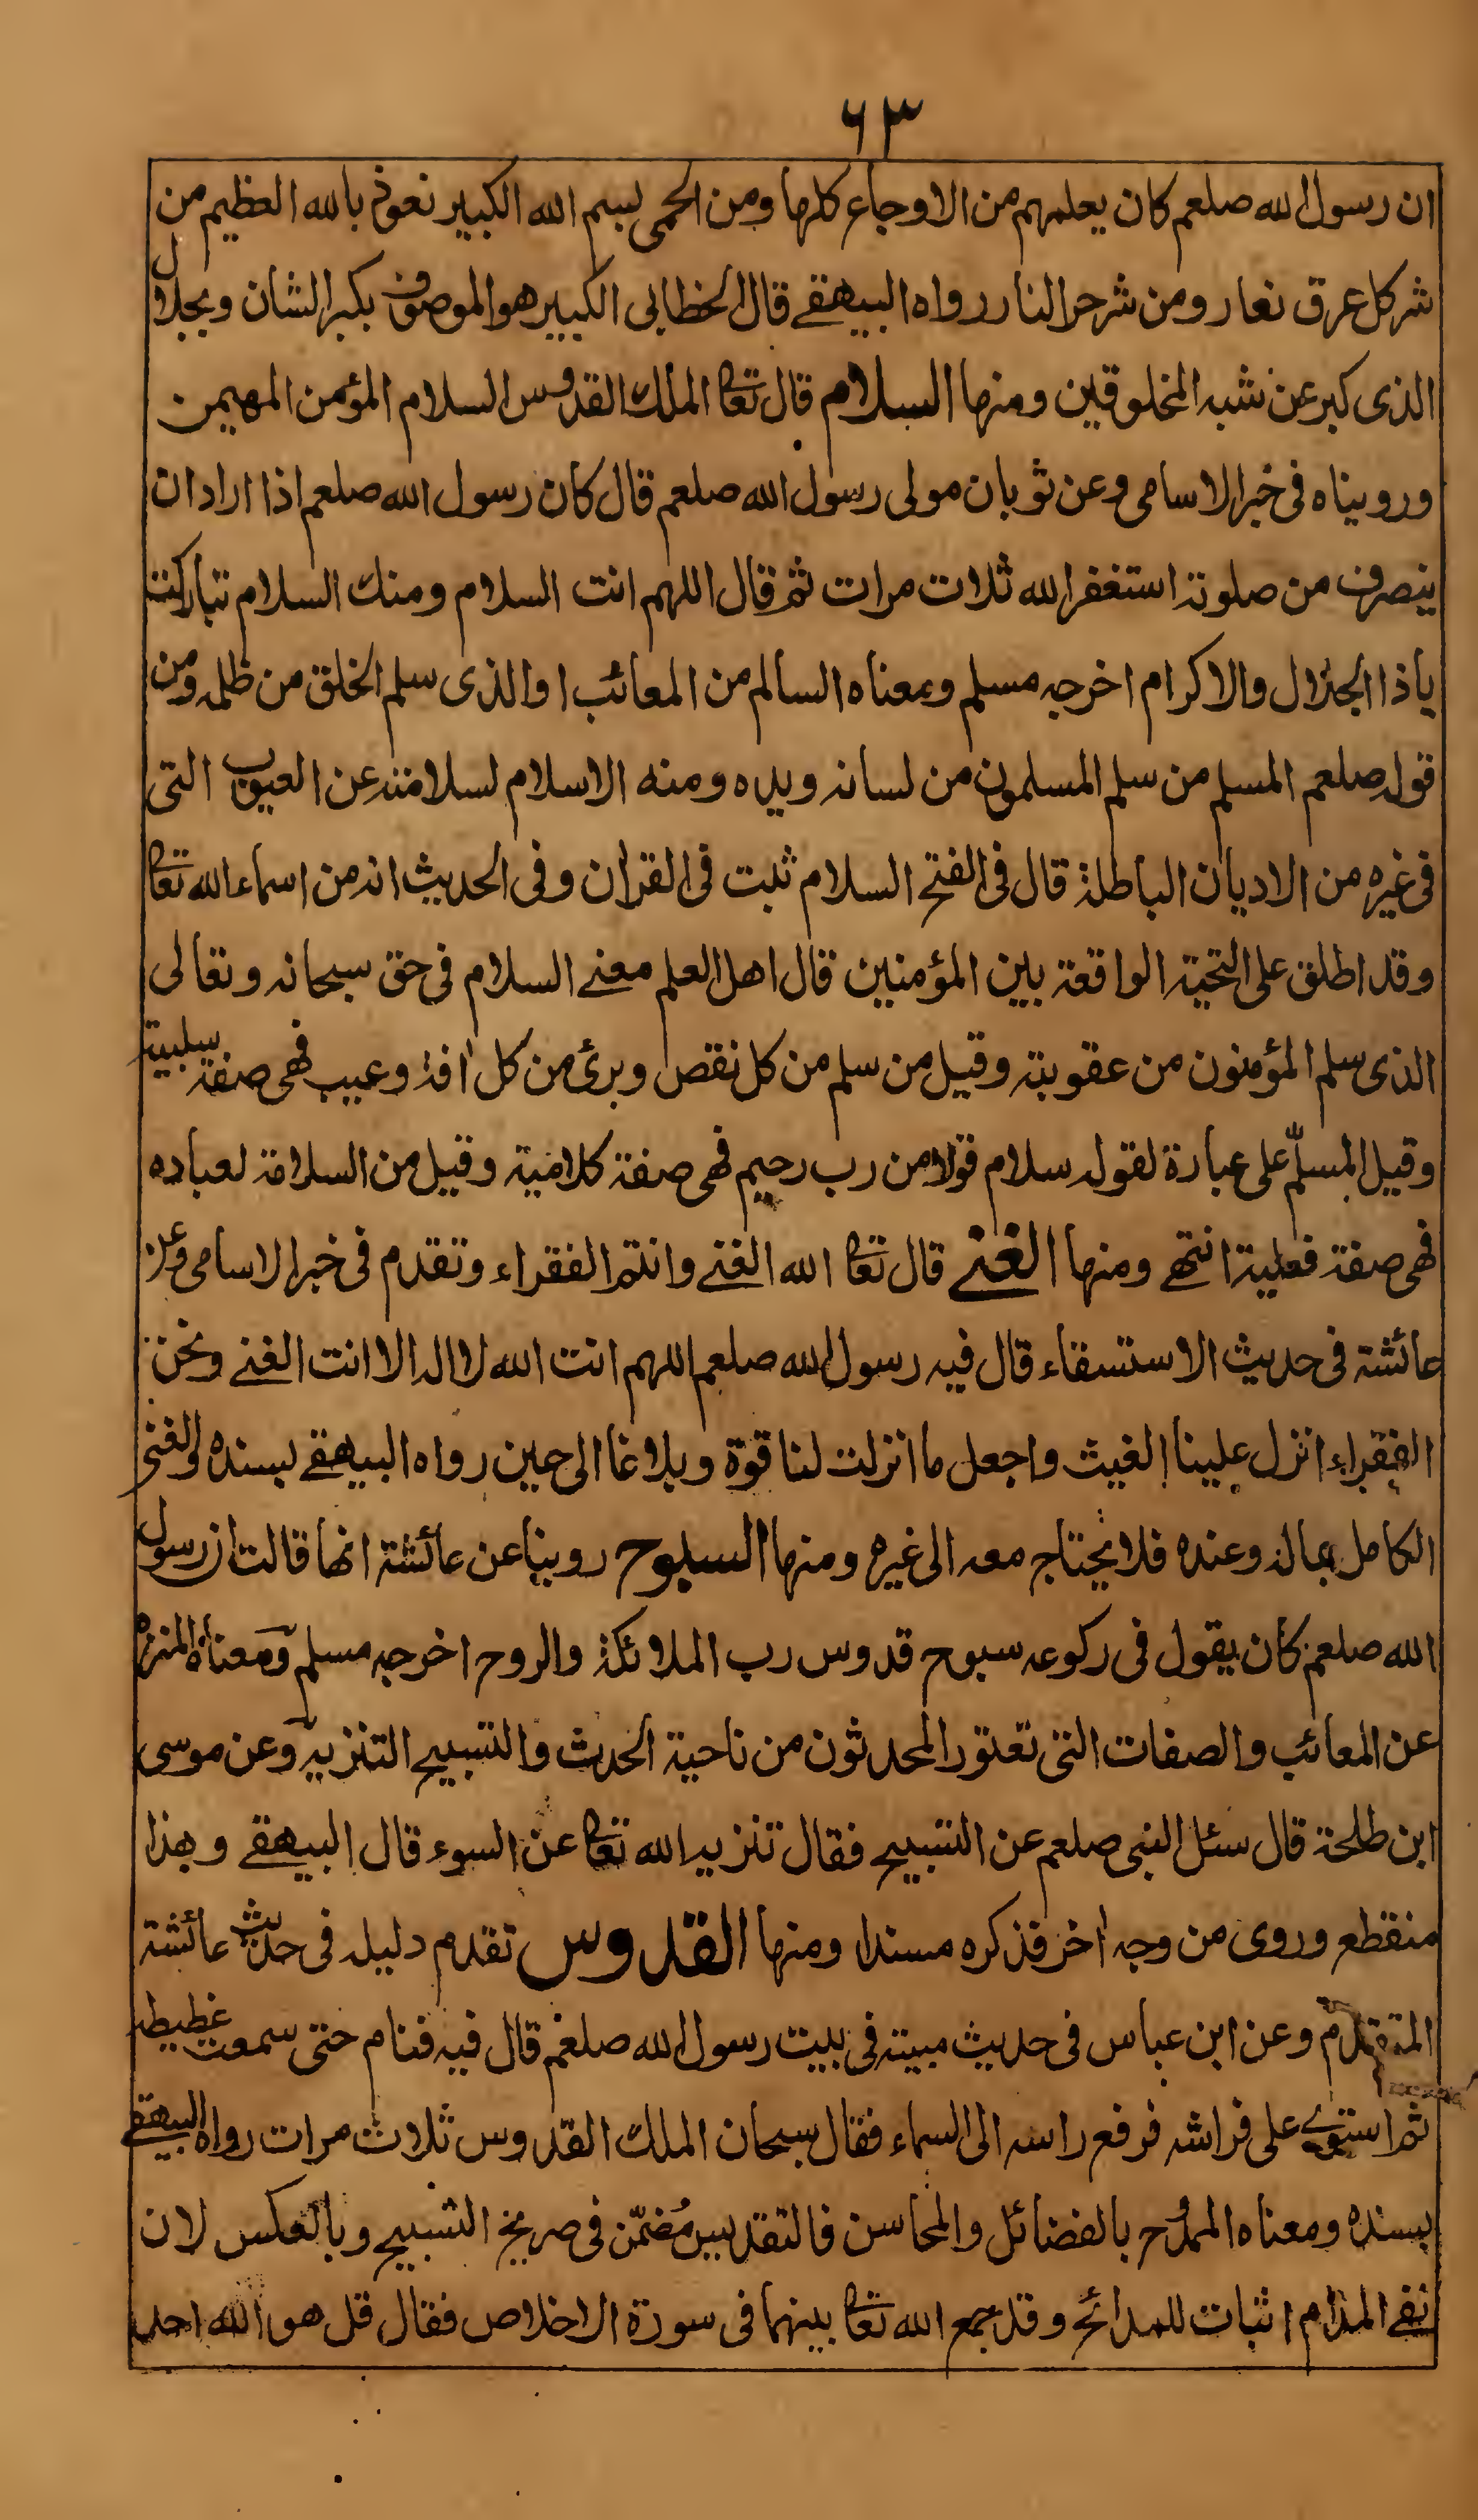 ٦٣
ان رسول الله صلعم كان يعلمهم من الاوجاع كلها ومن الحمى بسم الله الكبير نعوذ بالله العظيم من
شر كل عرق نعار ومن شر حر النار رواه البيهقے قال الخطابى الكبير هو الموصوف بكبر الشان وبجلال
الذى كبر عن شبه المخلوقين ومنها السلام قال تعا الملك القدوس السلام المؤمن المهيمن
وروبيناه فى خبر الاسامى وعن ثوبان مولى رسول الله صلعم قال كان رسول الله صلعم اذا اراد ان
ينصرف من صلوته استغفر الله ثلاث مرات ثم قال اللهم انت السلام ومنك السلام تباركت
ياذا الجلال والاكرام اخرجه مسلم ومعناه السالم من المعائب او الذى سلم الخلق من ظلمه ومن
قوله صلعم المسلم من سلم المسلمون من لسانه ويده ومنه الاسلام لسلامته عن العيوب التى
فى غيره من الاديان الباطلة قال فى الفتح السلام ثبت فى القران وفى الحديث انه من اسماء الله تعا
وقد اطلق على التحية الواقعة بين المؤمنين قال اهل العلم معنے السلام فى حق سبحانه وتعالى
الذى سلم المؤمنون من عقوبته وقيل من سلم من كل نقص وبرئ من كل افة وعيب فهى صفة سلبية
وقيل المسلّم على عبارة لقوله سلام قولا من رب رحيم فهى صفة كلامية وقيل من السلامة لعباده
فهى صفة فعلية انتهے ومنها الغنے قال تعا الله الغنے وانتم الفقراء وتقدم فى خبر الاسامى وعن
عائشة فى حديث الاستسقاء قال فيه رسول الله صلعم اللهم انت الله لا اله الا انت الغنے ونحن
الفقراء انزل علينا الغيث واجعل ما انزلت لنا قوة وبلاغا الى حين رواه البيهقے بسنده والغنى
الكامل بماله وعنده فلا يحتاج معه الى غيره ومنها السبوح روينا عن عائشة انها قالت ان رسول
الله صلعم كان يقول فى ركوعه سبوح قدوس رب الملائكة والروح اخرجه مسلم ومعناه المنزه
عن المعائب والصفات التى تعتور المحدثون من ناحية الحدث والتسبيح التنزيه وعن موسى
ابن طلحة قال سئل النبى صلعم عن التسبيح فقال تنزيه الله تعا عن السوء قال البيهقے وهذا
منقطع وروى من وجه اخر فذكره مسندا ومنها القدوس تقدم دليله فى حديث عائشة
المتقدم وعن ابن عباس فى حديث مبيته فى بيت رسول الله صلعم قال فيه فنام حتى سمعت غطيطه
ثم استوے على فراشه فرفع راسه الى السماء فقال سبحان الملك القدوس ثلاث مرات رواه البيهقے
بسنده ومعناه الممدُح بالفضائل والمحاسن فالتقديس مُضمّن فى صريح التسبيح وبالعكس لان
نفے المذام اثبات للمدائح وقد جمع الله تعا بينهما فى سورة الاخلاص فقال قل هو الله احد